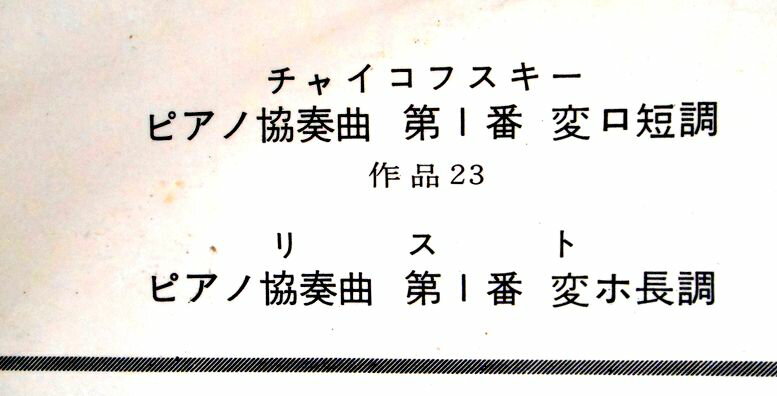 チャイコフスキー
ピアノ協奏曲 第1番 変ロ短調
作品23
リスト
ピアノ協奏曲 第1番 変ホ長調